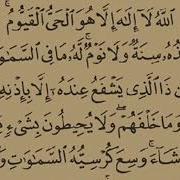 اللَّهُ لَا إِلَٰهَ إِلَّا هُوَ الْحَيُّ الْقَيُّومُ ۚ
ذُهُ سِنَةٌ وَلَا نَوْمٌ ۚ لَّهُ مَا فِي السَّمَاوَ
ن ذَا الَّذِي يَشْفَعُ عِندَهُ إِلَّا بِإِذْنِهِ
وَمَا خَلْفَهُمْ ۖ وَلَا يُحِيطُونَ بِشَيْءٍ
شَاءَ ۚ وَسِعَ كُرْسِيُّهُ السَّمَاوَاتِ وَ